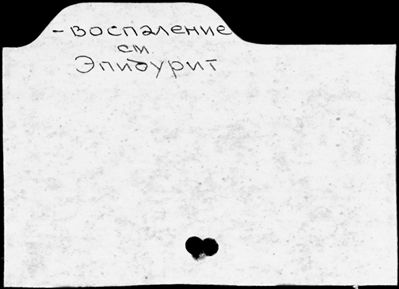 -воспаление
см.
Эпидурит